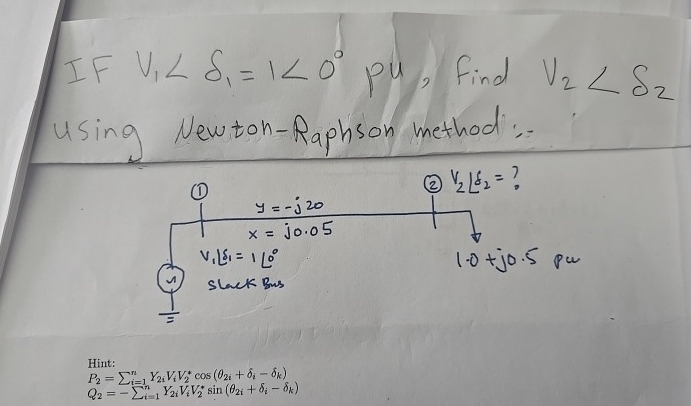 IF V₁∠ δ₁ = 1∠0° pu, find V₂∠δ₂
using Newton-Raphson method:-
① ② V₂∠δ₂ = ?
y = -j20
x = j0.05
V₁∠δ₁ = 1∠0°
1.0 + j0.5 pu
Slack Bus
Hint:
P₂ = ∑ⁿᵢ₌₁ Y₂ᵢVᵢV₂* cos (θ₂ᵢ + δᵢ − δₖ)
Q₂ = − ∑ⁿᵢ₌₁ Y₂ᵢVᵢV₂* sin (θ₂ᵢ + δᵢ − δₖ)